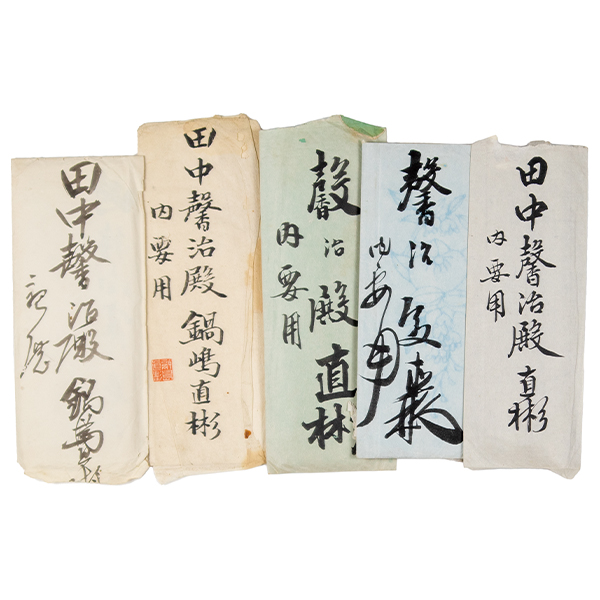 田中馨治殿 直彬
内要用
馨治殿 直彬
内要用
馨治殿 直彬
内要用
田中馨治殿 鍋嶋直彬
内要用
田中馨治殿 鍋